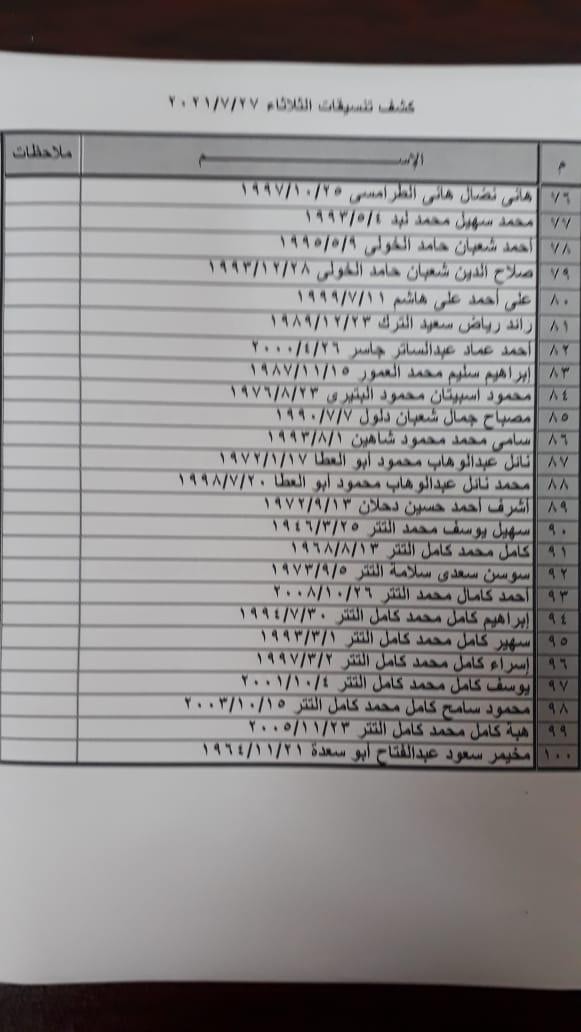 كشف تنسيقات الثلاثاء ٢٠٢١/٧/٢٧
م الإســـــم ملاحظات
٧٦ هانى نضال هانى الطرامسى ١٩٩٧/١٠/٢٥
٧٧ محمد سهيل محمد لبد ١٩٩٣/٥/٤
٧٨ احمد شعبان حامد الخولى ١٩٩٥/٥/٩
٧٩ صلاح الدين شعبان حامد الخولى ١٩٩٣/١٢/٢٨
٨٠ على أحمد على هاشم ١٩٩٩/٧/١١
٨١ رائد رياض سعيد الترك ١٩٨٩/١٢/٢٣
٨٢ أحمد عماد عبدالساتر جاسر ٢٠٠٠/٤/٢٦
٨٣ إبراهيم سليم محمد العمور ١٩٨٧/١١/١٥
٨٤ محمود اسبيتان محمود البتيرى ١٩٧٦/٨/٢٣
٨٥ مصباح جمال شعبان دلول ١٩٩٠/٧/٧
٨٦ سامى محمد محمود شاهين ١٩٩٣/٨/١
٨٧ نائل عبدالوهاب محمود أبو العطا ١٩٧٢/١/١٧
٨٨ محمد نائل عبدالوهاب محمود أبو العطا ١٩٩٨/٧/٢٠
٨٩ أشرف أحمد حسين دحلان ١٩٧٢/٩/١٣
٩٠ سهيل يوسف محمد التتر ١٩٤٦/٣/٢٥
٩١ كامل محمد كامل التتر ١٩٦٨/٨/١٣
٩٢ سوسن سعدى سلامة التتر ١٩٧٣/٩/٥
٩٣ أحمد كامال محمد التتر ٢٠٠٨/١٠/٢٦
٩٤ إبراهيم كامل محمد كامل التتر ١٩٩٤/٧/٣٠
٩٥ سهير كامل محمد كامل التتر ١٩٩٣/٣/١
٩٦ إسراء كامل محمد كامل التتر ١٩٩٧/٣/٢
٩٧ يوسف كامل محمد كامل التتر ٢٠٠١/١٠/٤
٩٨ محمود سامح كامل محمد كامل التتر ٢٠٠٣/١٠/١٥
٩٩ هبة كامل محمد كامل التتر ٢٠٠٥/١١/٢٣
١٠٠ مخيمر سعود عبدالفتاح أبو سعدة ١٩٦٤/١١/٢١